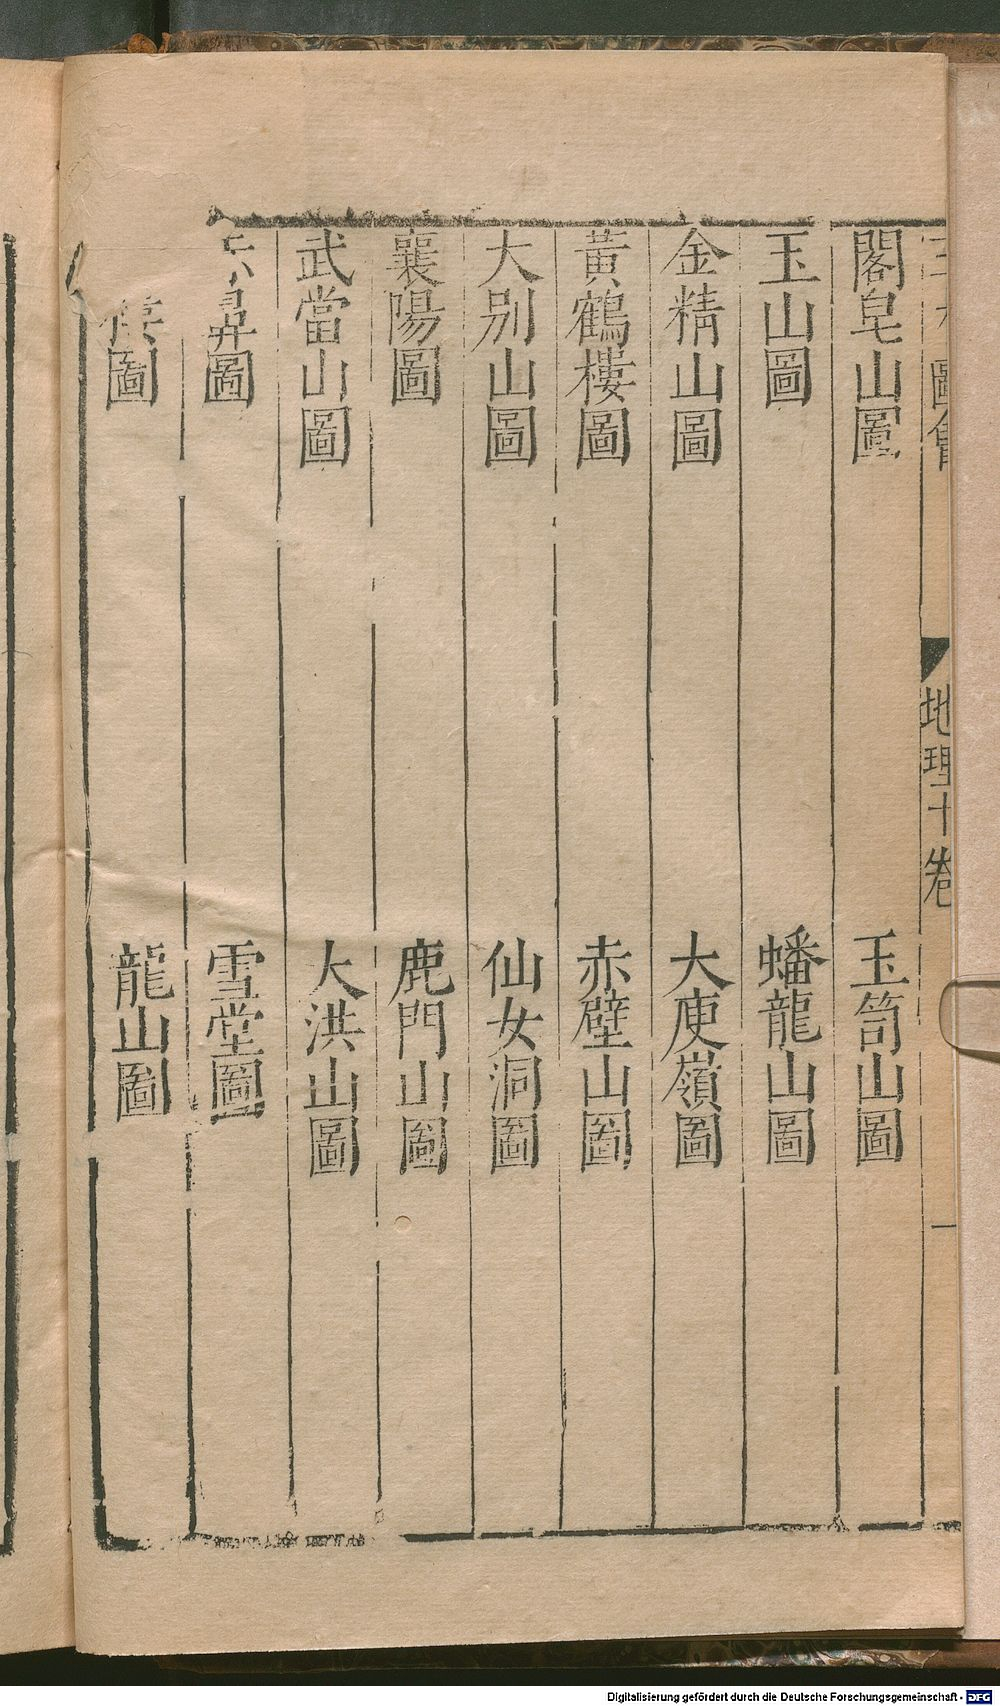 三才圖會
地理十卷
一
閣皂山圖
玉笥山圖
玉山圖
蟠龍山圖
金精山圖
大庾嶺圖
黃鶴樓圖
赤壁山圖
大別山圖
仙女洞圖
襄陽圖
鹿門山圖
武當山圖
大洪山圖
圖
雪堂圖
樓圖
龍山圖
Digitalisierung gefördert durch die Deutsche Forschungsgemeinschaft - DFG